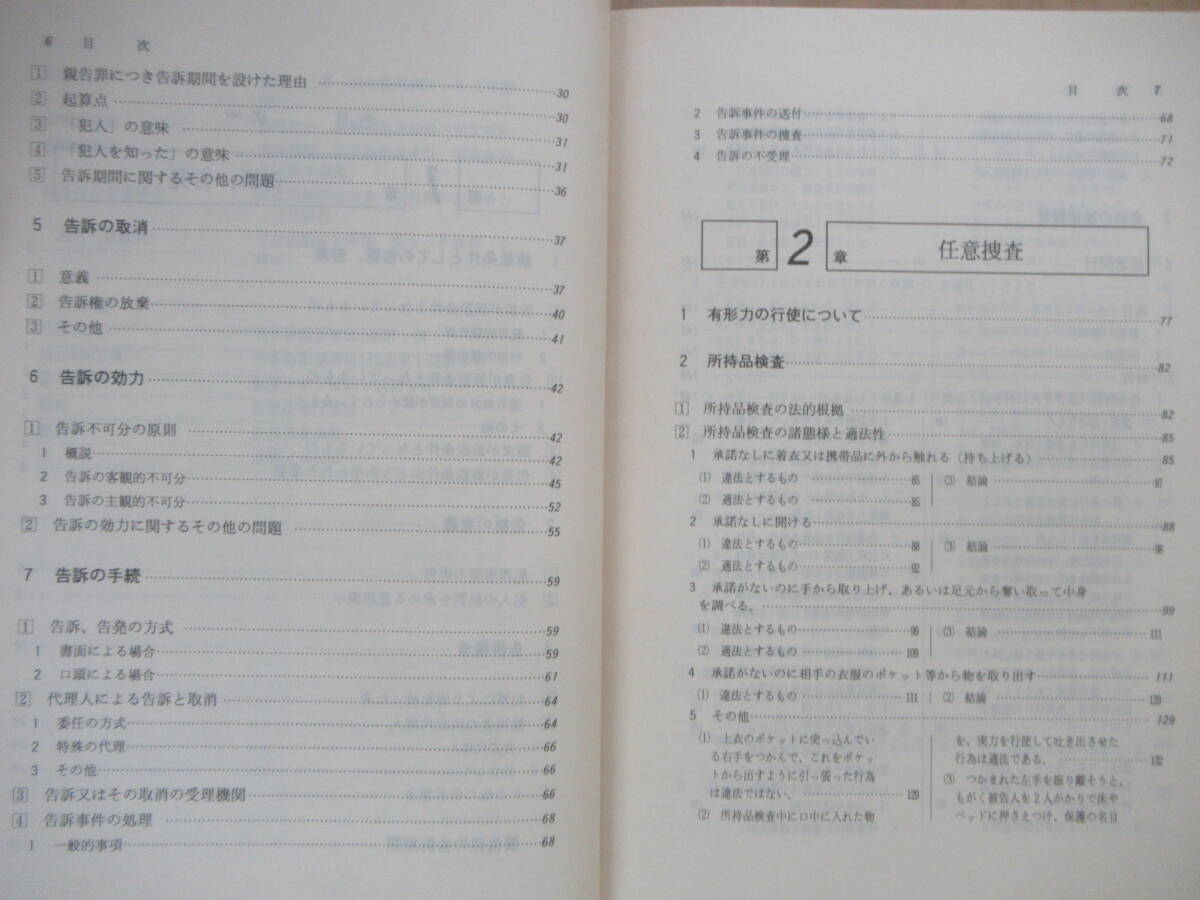 6 目 次
1 親告罪につき告訴期間を設けた理由 30
2 起算点 30
3 「犯人」の意味 31
4 「犯人を知った」の意味 31
5 告訴期間に関するその他の問題 36
5 告訴の取消 37
1 意義 37
2 告訴権の放棄 40
3 その他 41
6 告訴の効力 42
1 告訴不可分の原則 42
1 概説 42
2 告訴の客観的不可分 45
3 告訴の主観的不可分 52
2 告訴の効力に関するその他の問題 55
7 告訴の手続 59
1 告訴、告発の方式 59
1 書面による場合 59
2 口頭による場合 61
2 代理人による告訴と取消 64
1 委任の方式 64
2 特殊の代理 66
3 その他 66
3 告訴又はその取消の受理機関 66
4 告訴事件の処理 68
1 一般的事項 68
目 次 7
2 告訴事件の送付 68
3 告訴事件の捜査 71
4 告訴の不受理 72
第2章 任意捜査
1 有形力の行使について 77
2 所持品検査 82
1 所持品検査の法的根拠 82
2 所持品検査の諸態様と適法性 85
1 承諾なしに着衣又は携帯品に外から触れる(持ち上げる) 85
(1) 違法とするもの 85
(2) 適法とするもの 85
(3) 結論 87
2 承諾なしに開ける 88
(1) 違法とするもの 88
(2) 適法とするもの 92
(3) 結論 98
3 承諾がないのに手から取り上げ、あるいは足元から奪い取って中身
を調べる。 99
(1) 違法とするもの 99
(2) 適法とするもの 109
(3) 結論 111
4 承諾がないのに相手の衣服のポケット等から物を取り出す 111
(1) 違法とするもの 111
(2) 結論 129
5 その他 129
(1) 上衣のポケットに突っ込んでい
る右手をつかんで、これをポケッ
トから出すように引っ張った行為
は違法ではない。 129
(2) 所持品検査中に口中に入れた物
を、実力を行使して吐き出させた
行為は適法である。 132
(3) つかまれた左手を振り離そうと、
もがく被告人を2人がかりで床や
ベッドに押さえつけ、保護の名目